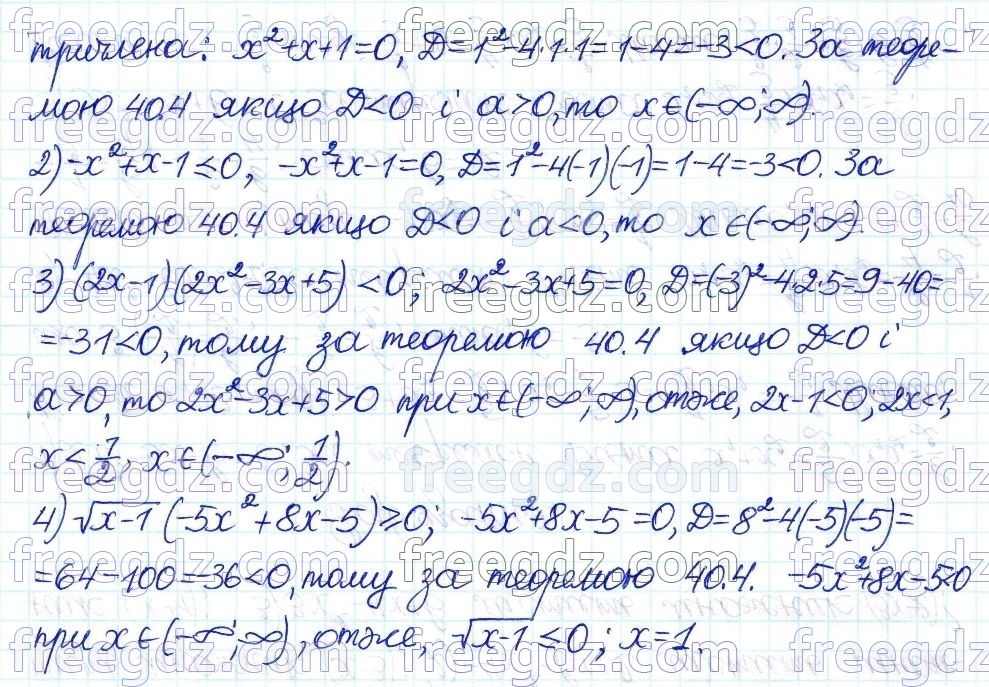 тричлена: x²+x+1=0, D=1²-4·1·1=1-4=-3<0. За теоре-
мою 40.4 якщо D<0 і a>0, то x∈(-∞;∞).
2) -x²+x-1≤0, -x²+x-1=0, D=1²-4(-1)(-1)=1-4=-3<0. За
теоремою 40.4 якщо D<0 і a<0, то x∈(-∞;∞).
3) (2x-1)(2x²-3x+5)<0; 2x²-3x+5=0, D=(-3)²-4·2·5=9-40=
=-31<0, тому за теоремою 40.4 якщо D<0 і
a>0, то 2x²-3x+5>0 при x∈(-∞;∞), отже, 2x-1<0; 2x<1,
x<1/2, x∈(-∞; 1/2).
4) √x-1 (-5x²+8x-5)≥0; -5x²+8x-5=0, D=8²-4(-5)(-5)=
=64-100=-36<0, тому за теоремою 40.4. -5x²+8x-5<0
при x∈(-∞;∞), отже, √x-1≤0; x=1.